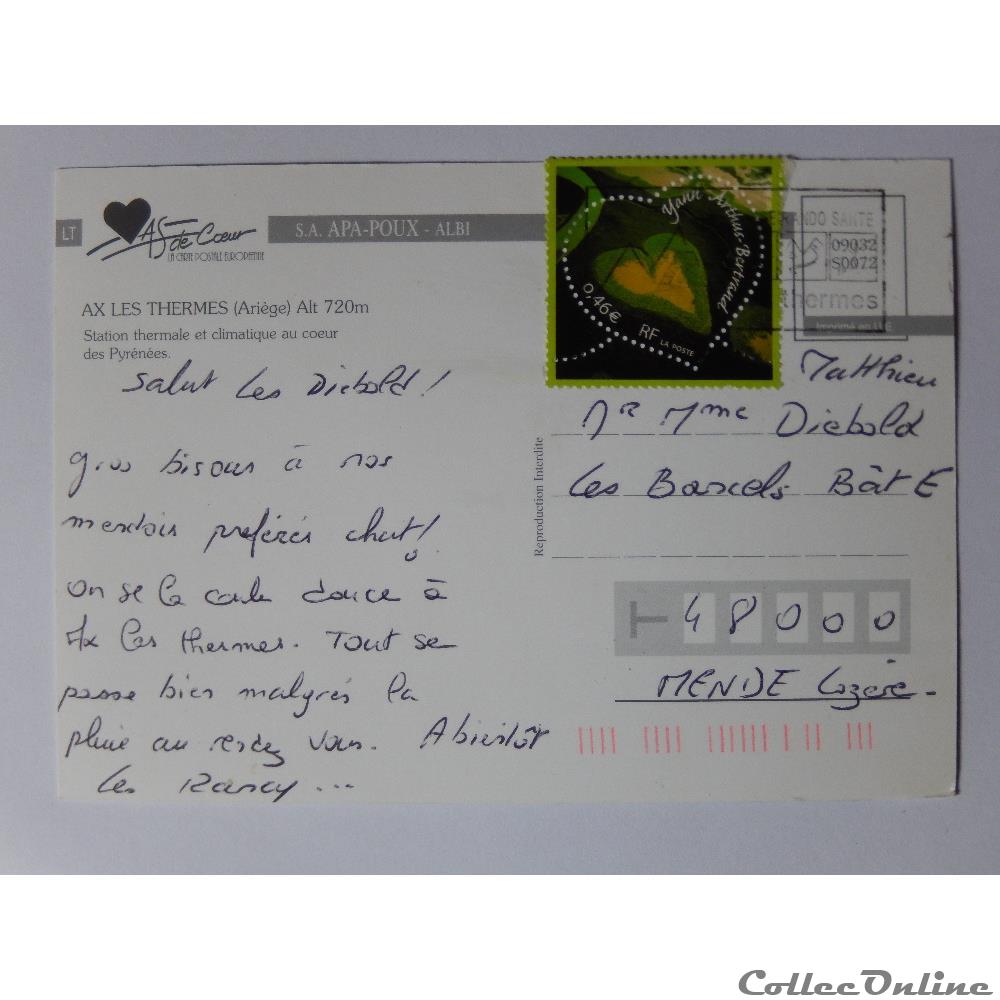 LT
AS de Cœur
LA CARTE POSTALE EUROPÉENNE
S.A. APA-POUX - ALBI
AX LES THERMES (Ariège) Alt 720m
Station thermale et climatique au coeur
des Pyrénées.
Salut Les Diebold !
gros bisous à nos
préférés chut!
On se la coule douce à
Ax les thermes. Tout se
passe bien malgrés la
pluie au rendez vous. A bientôt
Les ...
Yann Arthus-Bertrand
0,46€ RF LA POSTE
RANDO SANTE
09032
S0072
thermes
Imprimé en U.E
Matthieu
Mr Mme Diebold
Les Bât E
Reproduction Interdite
48000
MENDE Lozère.
CollecOnline